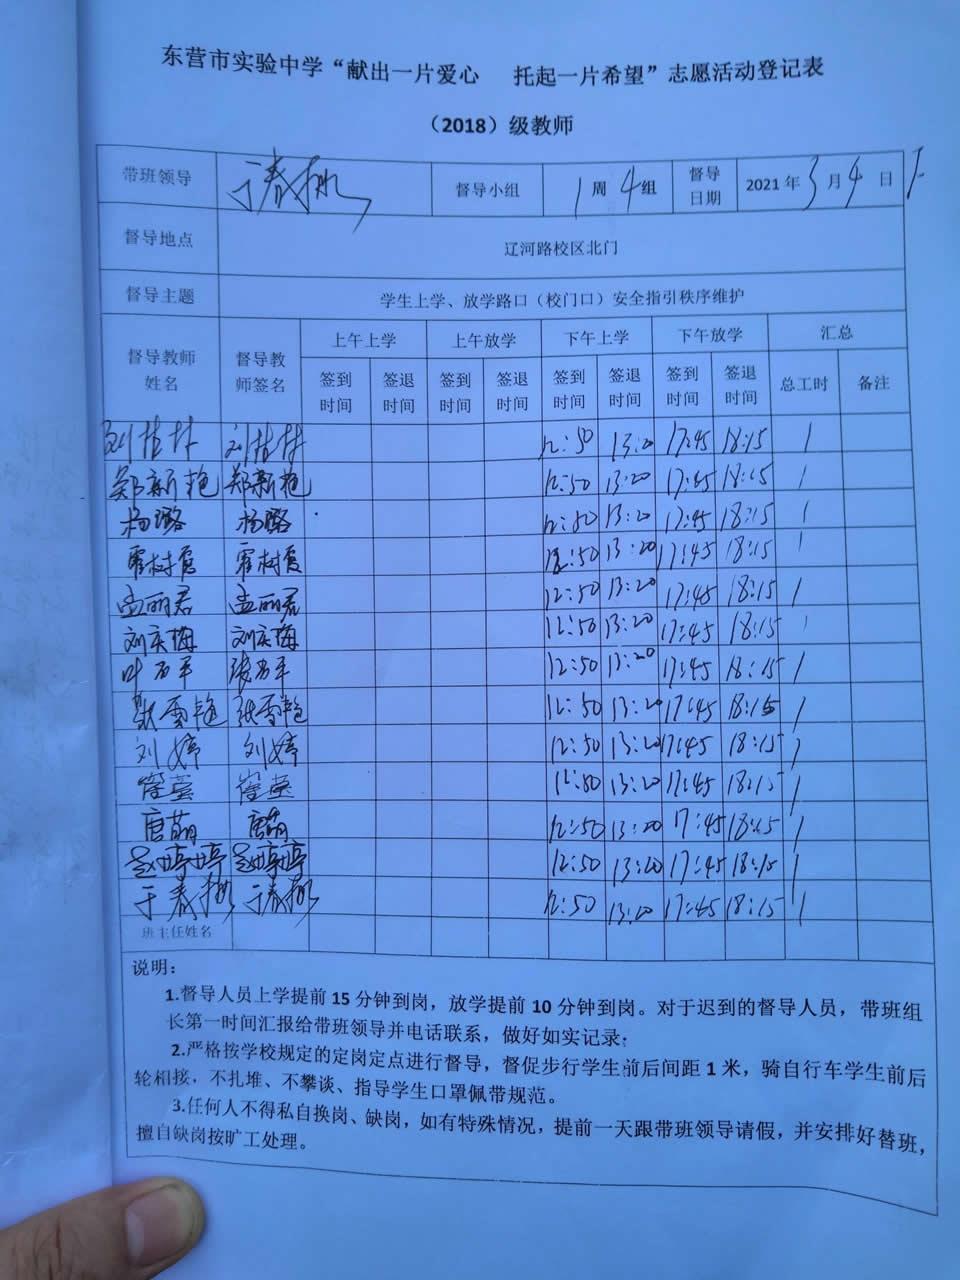 东营市实验中学“献出一片爱心 托起一片希望”志愿活动登记表
（2018）级教师
带班领导 于春彬 督导小组 1周4组 督导日期 2021年3月4日 下
督导地点 辽河路校区北门
督导主题 学生上学、放学路口（校门口）安全指引秩序维护
督导教师姓名 督导教师签名 上午上学 上午放学 下午上学 下午放学 汇总
签到时间 签退时间 签到时间 签退时间 签到时间 签退时间 签到时间 签退时间 总工时 备注
12:50 13:20 17:45 18:15 1
郑新艳 郑新艳 12:50 13:20 17:45 18:15 1
杨璐 杨璐 12:50 13:20 17:45 18:15 1
霍树 霍树 12:50 13:20 17:45 18:15 1
孟丽君 孟丽君 12:50 13:20 17:45 18:15 1
刘庆梅 刘庆梅 12:50 13:20 17:45 18:15 1
12:50 13:20 17:45 18:15 1
张雪艳 张雪艳 12:50 13:20 17:45 18:15 1
刘婷 刘婷 12:50 13:20 17:45 18:15 1
崔莹 崔莹 12:50 13:20 17:45 18:15 1
唐萌 唐萌 12:50 13:20 17:45 18:15 1
赵婷婷 赵婷婷 12:50 13:20 17:45 18:15 1
于春彬 于春彬 12:50 13:20 17:45 18:15 1
班主任姓名
说明：
1.督导人员上学提前15分钟到岗，放学提前10分钟到岗。对于迟到的督导人员，带班组
长第一时间汇报给带班领导并电话联系，做好如实记录；
2.严格按学校规定的定岗定点进行督导，督促步行学生前后间距1米，骑自行车学生前后
轮相接，不扎堆、不攀谈、指导学生口罩佩带规范。
3.任何人不得私自换岗、缺岗，如有特殊情况，提前一天跟带班领导请假，并安排好替班，
擅自缺岗按旷工处理。